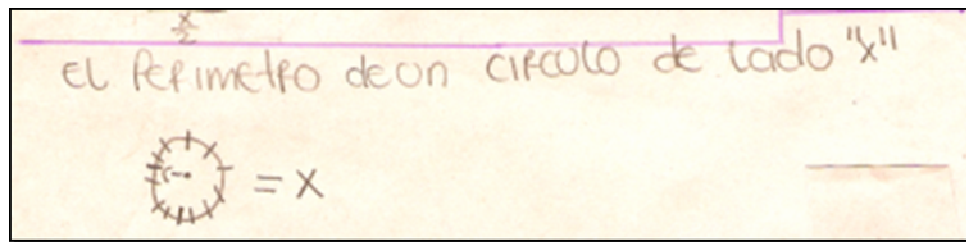 x
2
El perimetro de un circulo de lado "x"
= x